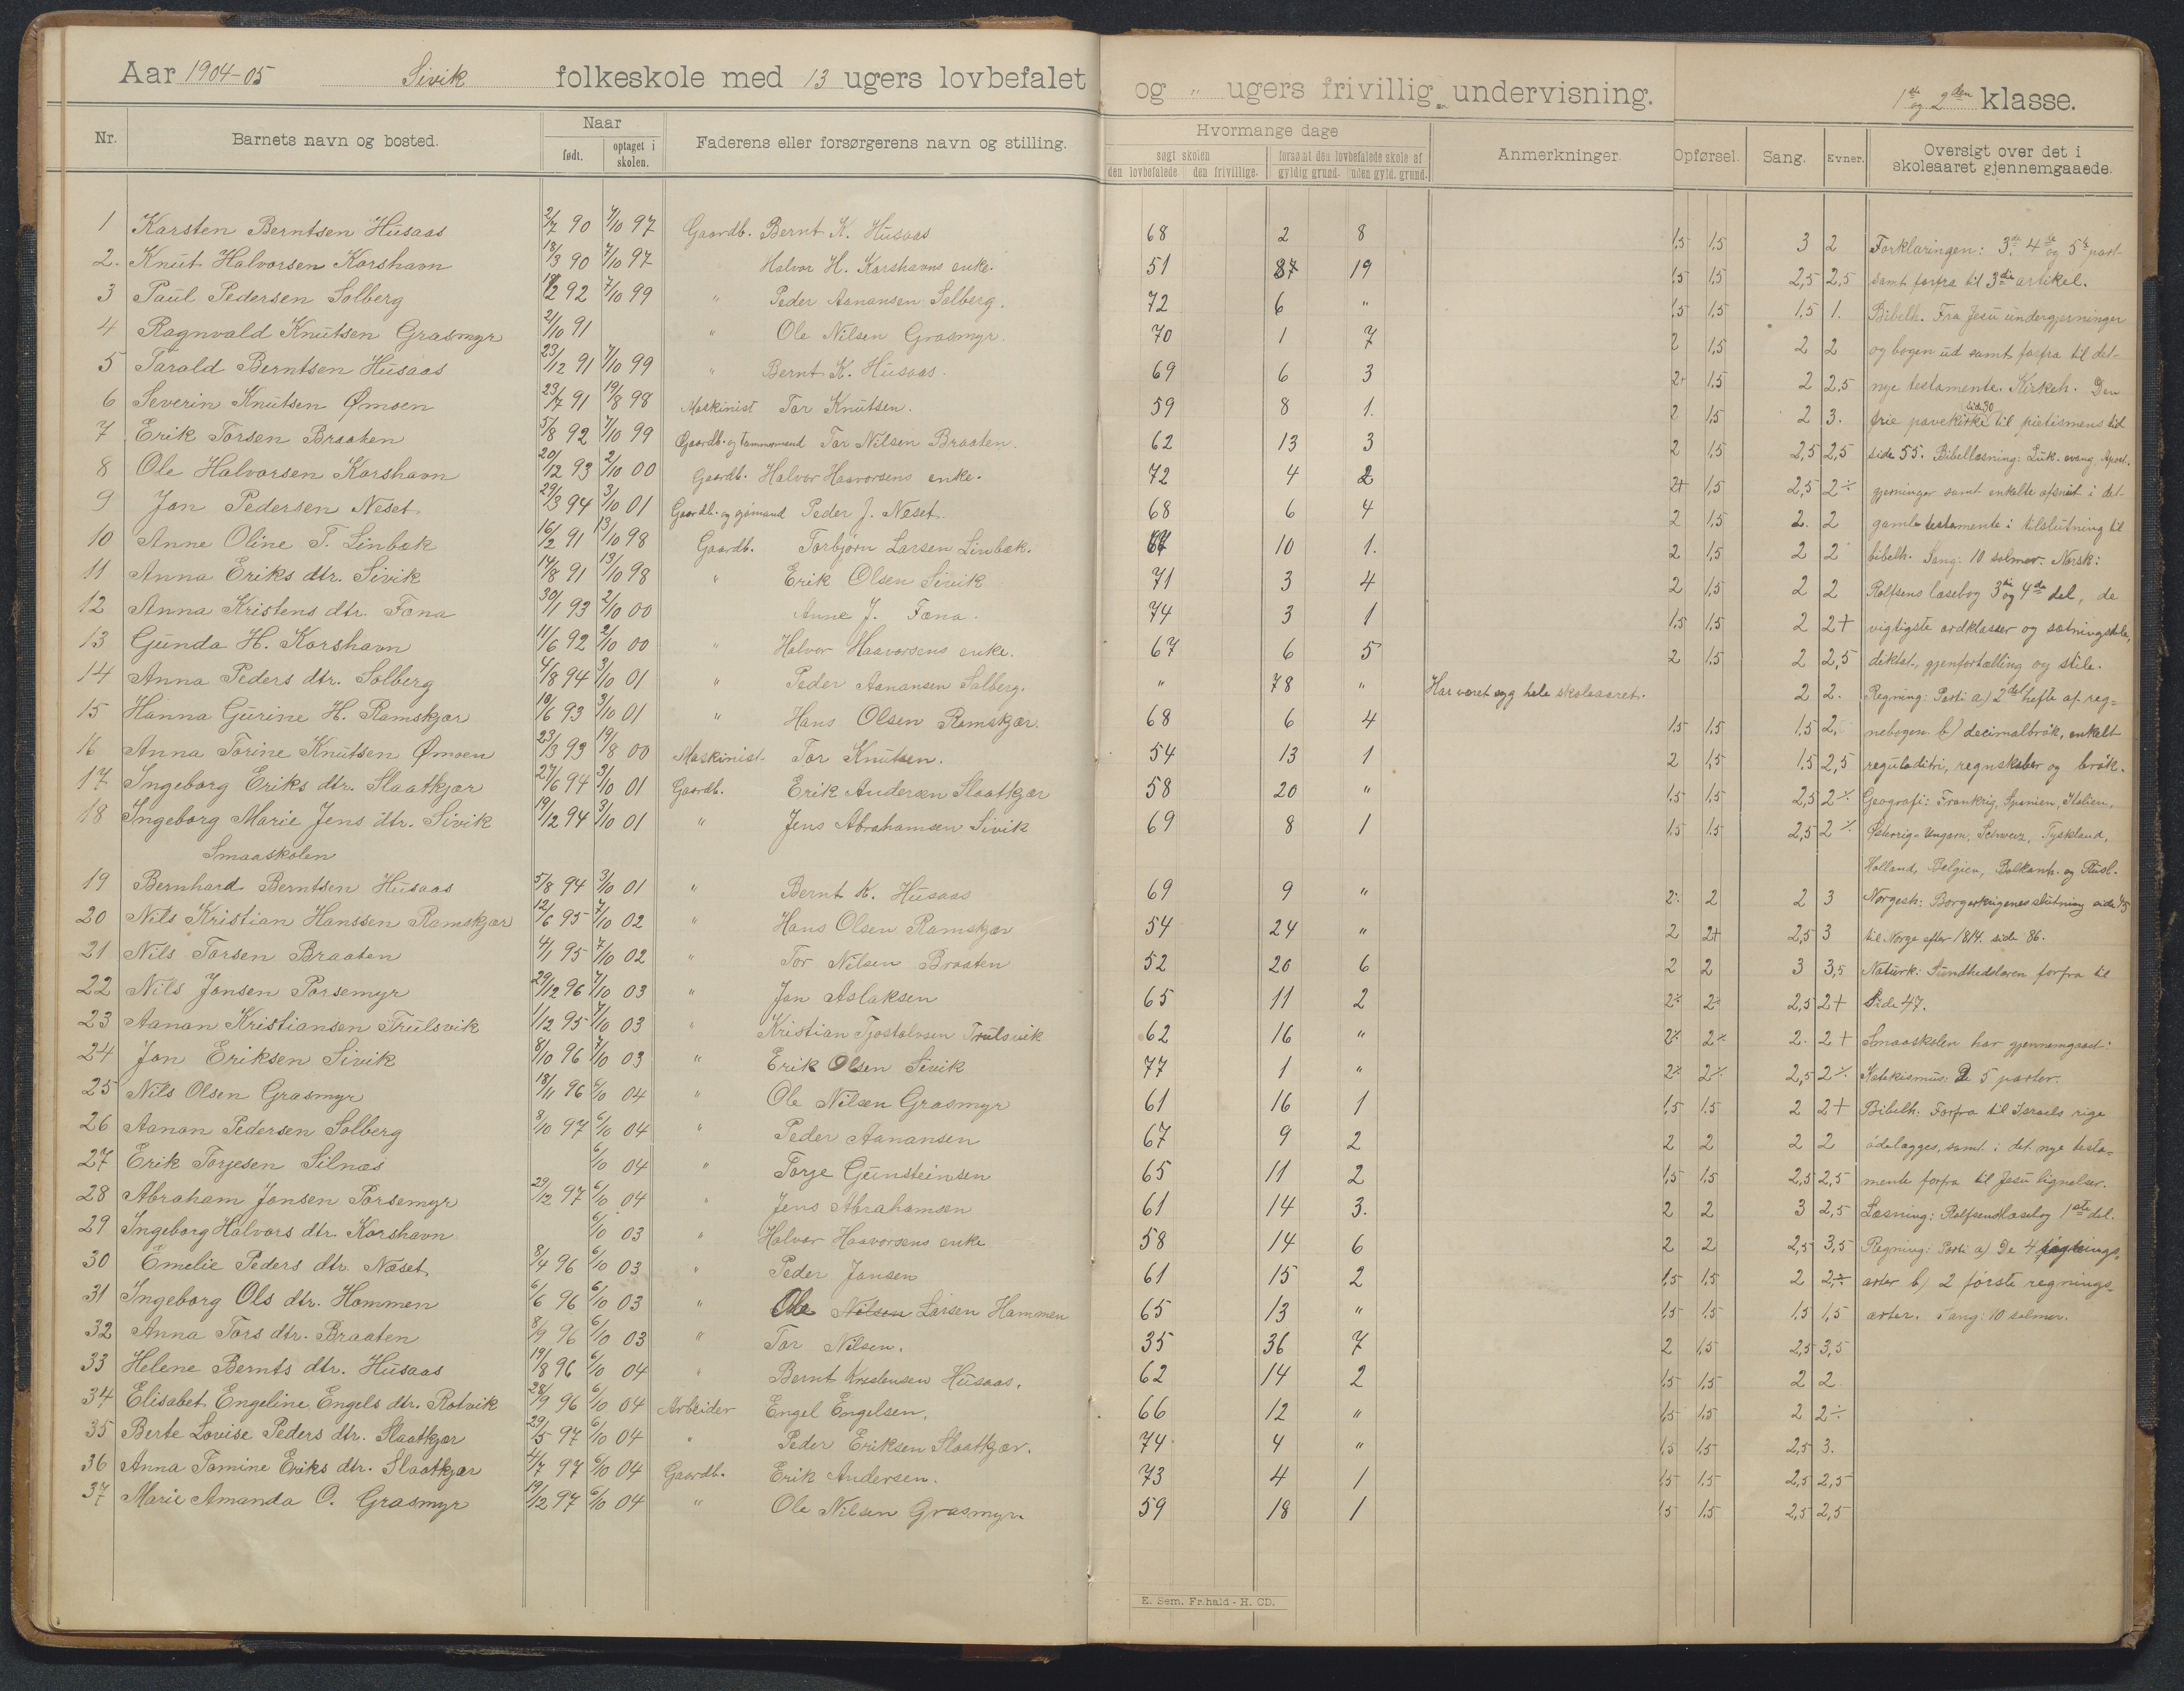 Aar 1904-05 Sivik folkeskole med 13 ugers lovbefalet og " ugers frivillig undervisning. 1ste og 2den klasse.
Nr. Barnets navn og bosted. Naar født. optaget i skolen. Faderens eller forsørgerens navn og stilling. Hvormange dage søgt skolen den lovbefalede den frivillige. forsømt den lovbefalede skole af gyldig grund. uden gyld. grund. Anmerkninger. Opførsel. Sang. Evner. Oversigt over det i skoleaaret gjennemgaaede.
1 Karsten Berntsen Husaas 2/7 90 7/10 97 Gaardb. Bernt K. Husaas 68 2 8 1,5 1,5 3 2 Forklaringen: 3die 4de og 5te part
2. Knut Halvorsen Korshavn 18/3 90 7/10 97 Halvor H. Korshavns enke. 51 19 1,5 1,5 2,5 2,5 samt forfra til 3die artikel.
3 Paul Pedersen Solberg 92 7/10 99 " Peder Aanansen Solberg. 72 6 " 1,5 1,5 1,5 1. Bibelh. Fra Jesu undergjerninger
4 Ragnvald Knutsen Grasmyr 2/10 91 " Ole Nilsen Grasmyr. 70 1 7 2 1,5 2 2 og bogen ud samt forfra til det
5 Tarald Berntsen Husaas 23/12 91 7/10 99 " Bernt K. Husaas. 69 6 3 2+ 1,5 2 2,5 nye testamente. Kirkeh. Den
6 Severin Knutsen Ømoen 23/7 91 19/8 98 Maskinist Tor Knutsen. 59 8 1. 2 1,5 2 3. frie pavekirke side 30 til pietismens tid
7 Erik Torsen Braaten 5/8 92 7/10 99 Gaardb. og tømmermand Tor Nilsen Braaten. 62 13 3 2 1,5 2,5 2,5 side 55. Bibellæsning: Luk. evang. Apost.
8 Ole Halvorsen Korshavn 20/12 93 2/10 00 Gaardb. Halvor Haavorsens enke. 72 4 2 2+ 1,5 2,5 2÷ gjerninger samt enkelte afsnit i det
9 Jon Pedersen Neset 29/3 94 3/10 01 Gaardb. og sjømand Peder J. Neset. 68 6 4 2 1,5 2. 2 gamle testamente i tilslutning til
10 Anne Oline T. Linbæk 16/2 91 13/10 98 Gaardb. Torbjørn Larsen Linbæk. 10 1. 2 1,5 2 2 bibelh. Sang: 10 salmer. Norsk:
11 Anna Eriks dtr. Sivik 14/8 91 13/10 98 " Erik Olsen Sivik 71 3 4 2 1,5 2 2 Rolfsens læsebog 3die og 4de del, de
12 Anna Kristens dtr. Fona 30/1 93 2/10 00 Anne J. Fona. 74 3 1 1,5 1,5 2 2+ vigtigste ordklasser og sætningsdele,
13 Gunda H. Korshavn 11/6 92 2/10 00 " Halvor Haavorsens enke. 67 6 5 2 1,5 2 2,5 diktat, gjenfortælling og stile.
14 Anna Peders dtr. Solberg 4/8 94 3/10 01 " Peder Aanansen Solberg. " 78 " Har været syg hele skoleaaret. 2 2. Regning: Parti a) 2det hefte af reg-
15 Hanna Gurine H. Ramskjær 18/6 93 3/10 01 " Hans Olsen Ramskjær. 68 6 4 1,5 1,5 1,5 2. nebogen. b) decimalbrøk, enkelt
16 Anna Torine Knutsen Ømoen 23/3 93 19/8 00 Maskinist Tor Knutsen. 54 13 1 2 1,5 1,5 2,5 reguladitri, regnskaber og brøk.
17 Ingeborg Eriks dtr. Slaatkjær 27/6 94 3/10 01 Gaardb. Erik Andersen Slaatkjær 58 20 " 1,5 1,5 2,5 2÷ Geografi: Frankrig, Spanien, Italien,
18 Ingeborg Marie Jens dtr. Sivik 19/12 94 3/10 01 " Jens Abrahamsen Sivik 69 8 1 1,5 1,5 2,5 2÷ Østerrig-Ungarn, Schweiz, Tyskland,
Smaaskolen Holland, Belgien, Balkanh. og Rusl.
19 Bernhard Berntsen Husaas 5/8 94 3/10 01 " Bernt K. Husaas 69 9 " 2÷ 2 2 3 Norgesh: Borgerkrigenes slutning side 45
20 Nils Kristian Hanssen Ramskjær 12/6 95 7/10 02 " Hans Olsen Ramskjær 54 24 " 2 2+ 2,5 3 til Norge efter 1814. side 86.
21 Nils Torsen Braaten 4/1 95 7/10 02 " Tor Nilsen Braaten 52 20 6 2 2 3 3,5 Naturk: Sundhedslæren forfra til
22 Nils Jonsen Porsemyr 29/12 96 7/10 03 " Jon Aslaksen 65 11 2 2÷ 2÷ 2,5 2+ side 47.
23 Aanon Kristiansen Trulsvik 1/12 95 7/10 03 " Kristian Tjostolvsen Trulsvik 62 16 " 2÷ 2÷ 2. 2+ Smaaskolen har gjennemgaaet:
24 Jon Eriksen Sivik 8/10 96 7/10 03 " Erik Olsen Sivik 77 1 " 2÷ 2÷ 2,5 2÷ Katekismus: De 5 parter.
25 Nils Olsen Grasmyr 18/11 96 6/10 04 " Ole Nilsen Grasmyr 61 16 1 1,5 1,5 2 2+ Bibelh. Forfra til Israels rige
26 Aanon Pedersen Solberg 8/10 97 6/10 04 " Peder Aanansen 67 9 2 2 2 2 2 ødelægges, samt i det nye testa-
27 Erik Torjesen Silnæs 6/10 04 " Torje Gunsteinsen 65 11 2 1,5 1,5 2,5 2,5 mente forfra til Jesu lignelser.
28 Abraham Jonsen Porsemyr 29/12 97 6/10 04 " Jens Abrahamsen 61 14 3. 2 2 3 2,5 Læsning: Rolfsens læsebog 1ste del.
29 Ingeborg Halvors dtr. Korshavn 6/10 03 " Halvor Haavorsens enke 58 14 6 2 2 2,5 3,5 Regning: Parti a) De 4 regnings-
30 Emelie Peders dtr. Næset 8/4 96 6/10 03 " Peder Jonsen 61 15 2 1,5 1,5 2 2÷ arter b) 2 første regnings-
31 Ingeborg Ols dtr. Hommen 6/6 96 6/10 03 " Ole Nilsen Larsen Hammen 65 13 " 1,5 1,5 1,5 1,5 arter. Sang: 10 salmer.
32 Anna Tors dtr. Braaten 8/9 96 6/10 03 " Tor Nilsen. 35 36 7 2 1,5 2,5 3,5
33 Helene Bernts dtr. Husaas 19/8 96 6/10 04 " Bernt Kristensen Husaas. 62 14 2 1,5 1,5 2 2
34 Elisabet Engeline Engels dtr. Rotvik 28/9 96 6/10 04 Arbeider Engel Engelsen. 66 12 " 1,5 1,5 2 2÷
35 Berte Lovise Peders dtr. Slaatkjær 29/5 97 6/10 04 " Peder Eriksen Slaatkjær. 74 4 " 1,5 1,5 2,5 3.
36 Anna Tomine Eriks dtr. Slaatkjær 4/7 97 6/10 04 Gaardb. Erik Andersen. 73 4 1 1,5 1,5 2,5 2,5
37 Marie Amanda O. Grasmyr 19/12 97 6/10 04 " Ole Nilsen Grasmyr. 59 18 1 1,5 1,5 2,5 2,5
E. Sem. Fr.hald - H. CD.